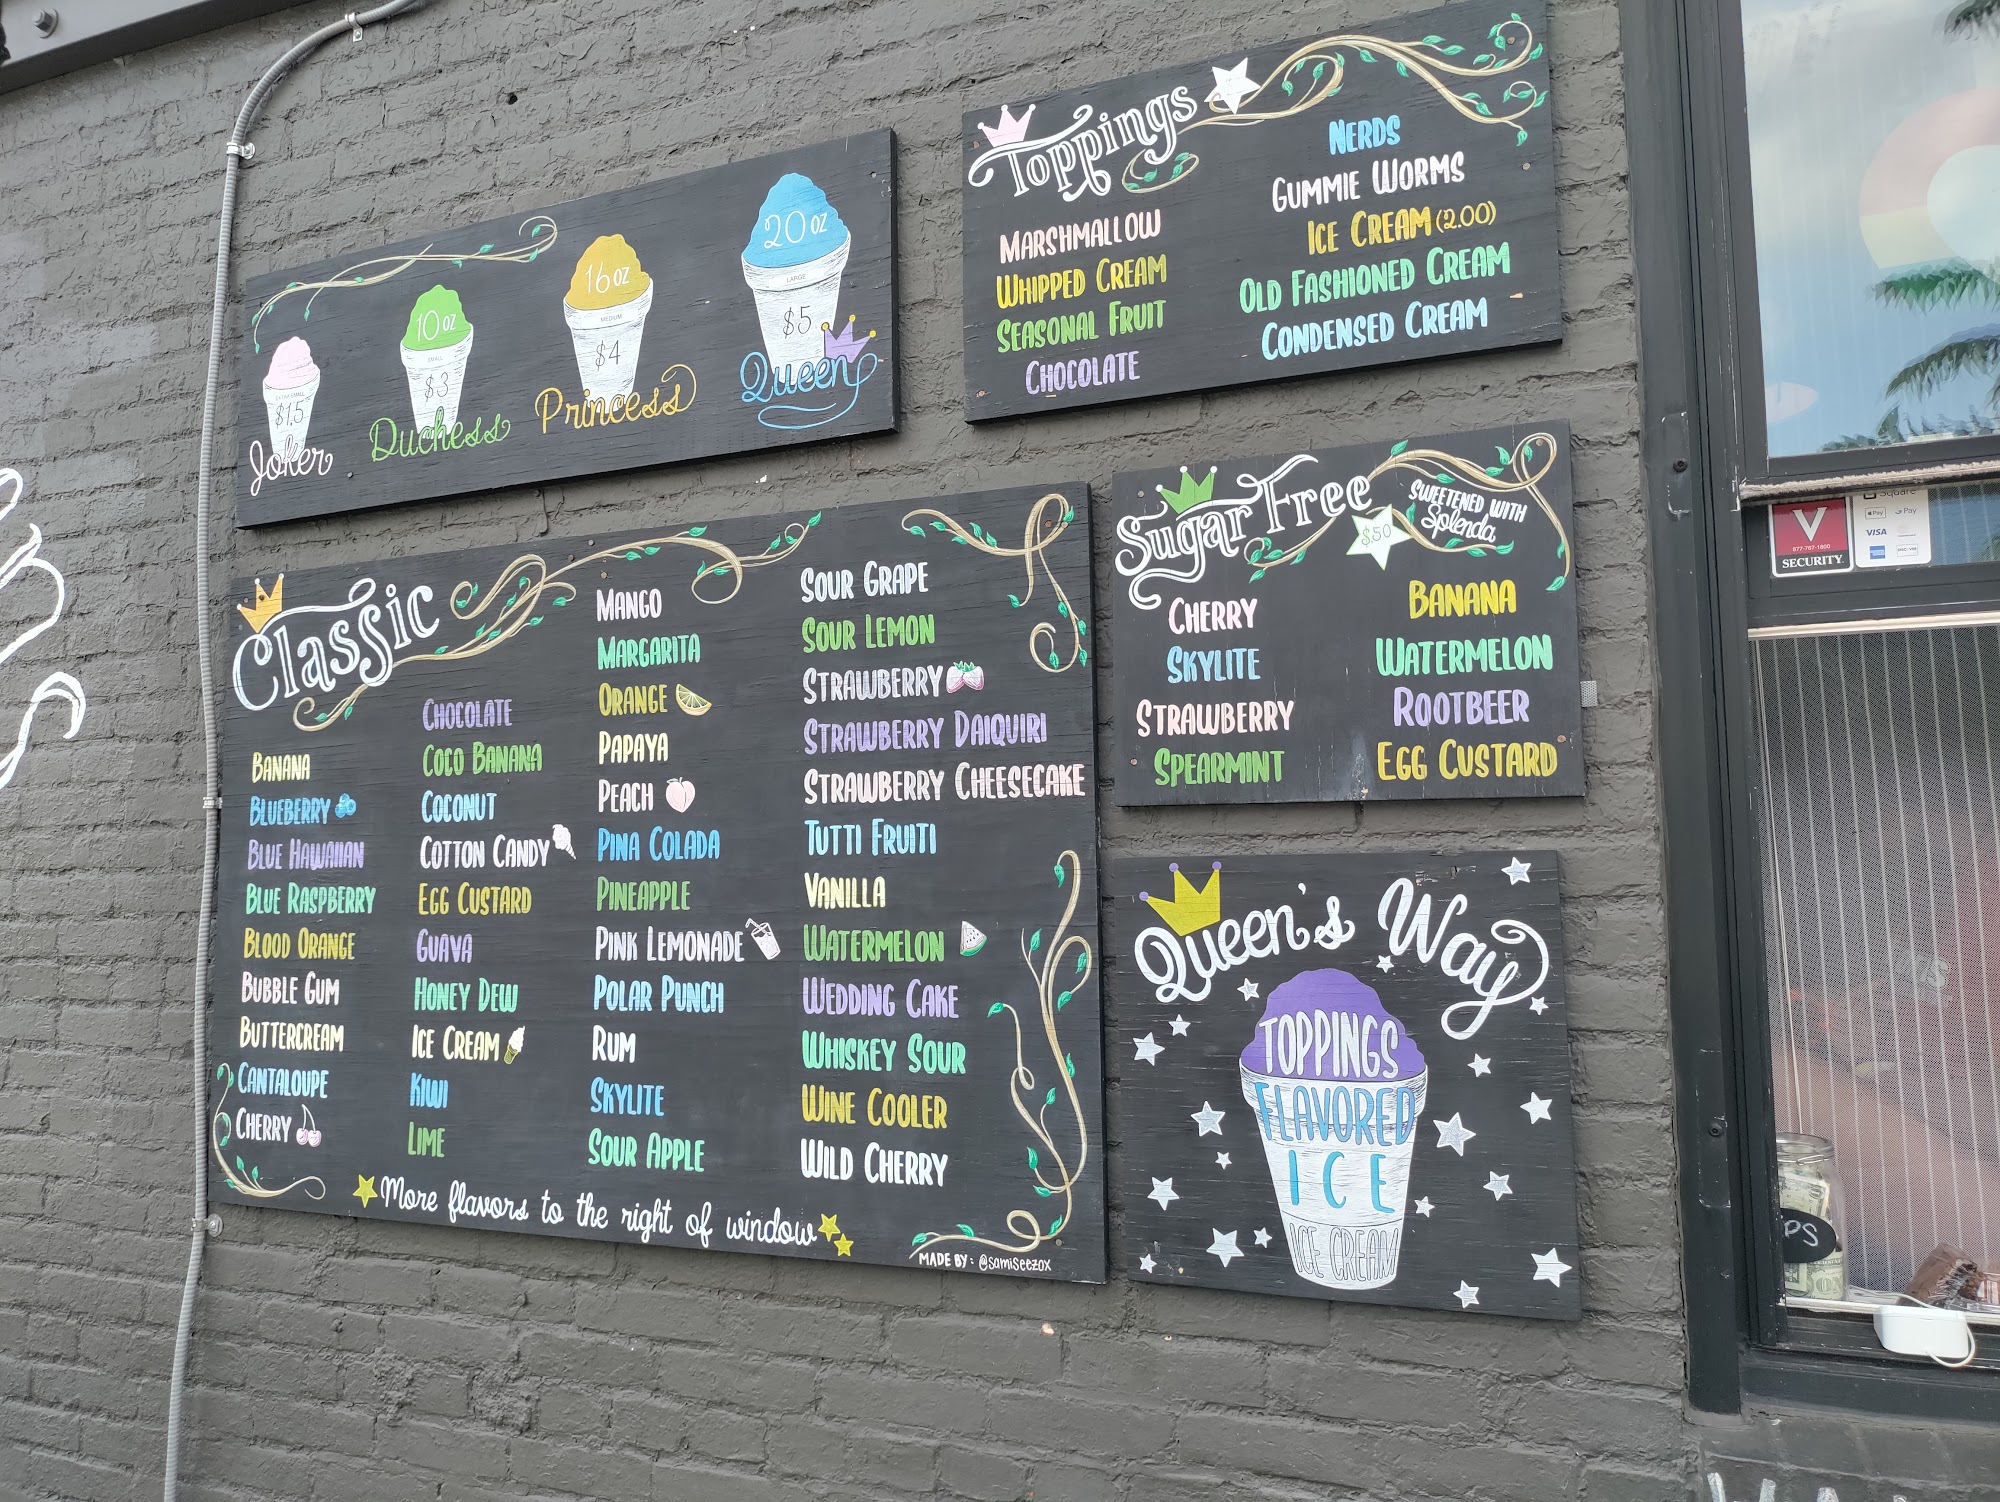 20 oz
LARGE
$5
Queen
16 oz
MEDIUM
$4
Princess
10 oz
SMALL
$3
Duchess
EXTRA SMALL
$1.5
Joker
Toppings
MARSHMALLOW
WHIPPED CREAM
SEASONAL FRUIT
CHOCOLATE
NERDS
GUMMIE WORMS
ICE CREAM (2.00)
OLD FASHIONED CREAM
CONDENSED CREAM
Classic
BANANA
BLUEBERRY
BLUE HAWAIIAN
BLUE RASPBERRY
BLOOD ORANGE
BUBBLE GUM
BUTTERCREAM
CANTALOUPE
CHERRY
CHOCOLATE
COCO BANANA
COCONUT
COTTON CANDY
EGG CUSTARD
GUAVA
HONEY DEW
ICE CREAM
KIWI
LIME
MANGO
MARGARITA
ORANGE
PAPAYA
PEACH
PINA COLADA
PINEAPPLE
PINK LEMONADE
POLAR PUNCH
RUM
SKYLITE
SOUR APPLE
SOUR GRAPE
SOUR LEMON
STRAWBERRY
STRAWBERRY DAIQUIRI
STRAWBERRY CHEESECAKE
TUTTI FRUITI
VANILLA
WATERMELON
WEDDING CAKE
WHISKEY SOUR
WINE COOLER
WILD CHERRY
More flavors to the right of window
MADE BY: @samiseezox
Sugar Free
$.50
SWEETENED WITH
Splenda
CHERRY
SKYLITE
STRAWBERRY
SPEARMINT
BANANA
WATERMELON
ROOTBEER
EGG CUSTARD
Queen's Way
TOPPINGS
FLAVORED
ICE
ICE CREAM
V
877-767-1800
SECURITY
Square
Pay
Pay
VISA
PS